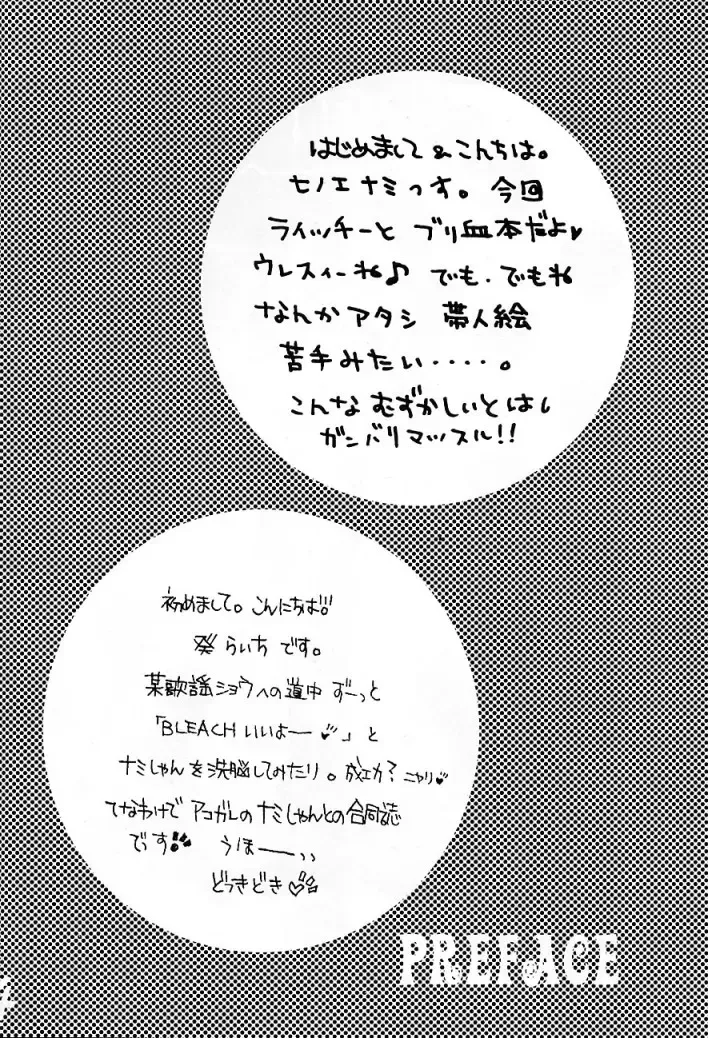 はじめまして&こんちは。
七ノエナミっす。今回
ライッチーと ブリ血本だよ♥
ウレスィーね♪ でも・でもね
なんかアタシ 帯人絵
苦手みたい・・・・。
こんな むずかしいとはし
ガンバリマッスル!!
初めまして。こんにちは!!
らいち です。
某歌謡ショウへの道中 ずーっと
「BLEACHいいよー♥」と
ナミしゃんを洗脳してみたり。成功? ニヤリ♥
てなわけで アコガレのナミしゃんとの合同誌
でっす!! うほーーっ
どっきどき♡
PREFACE
4